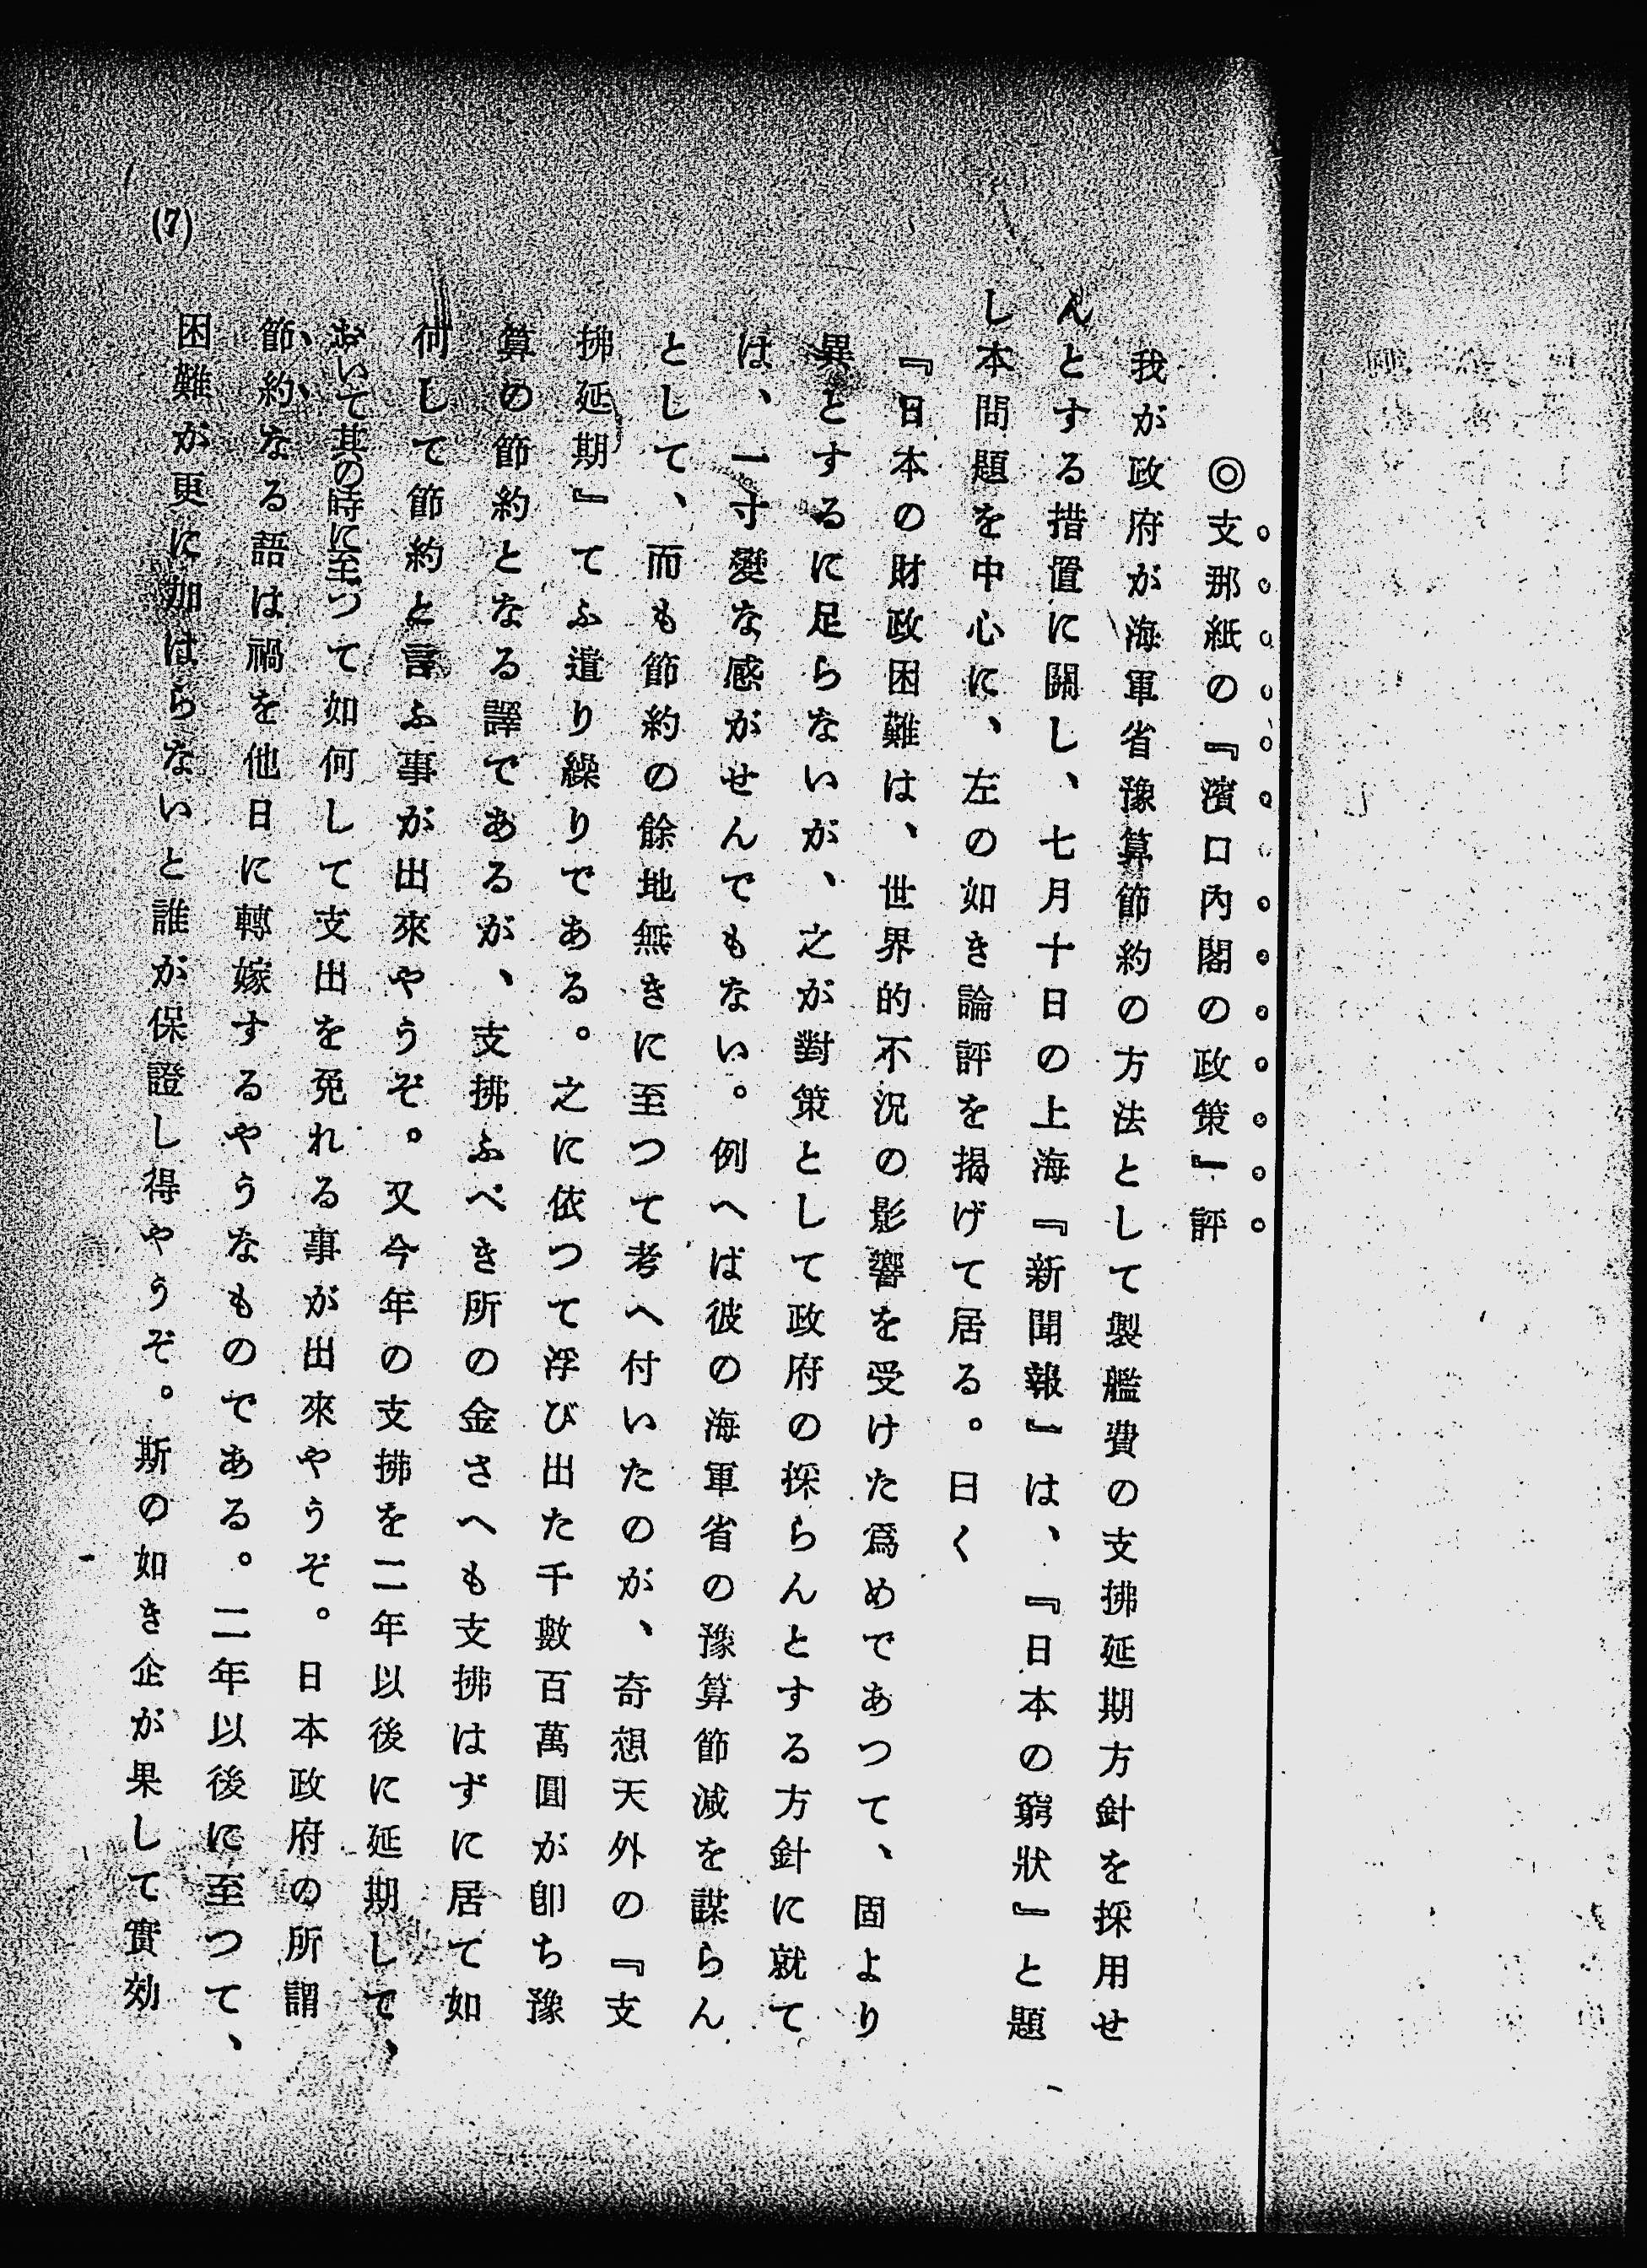 ◎支那紙の『濱口內閣の政策』評
我が政府が海軍省豫算節約の方法として製艦費の支拂延期方針を採用せ
んとする措置に關し、七月十日の上海『新聞報』は、『日本の窮狀』と題
し本問題を中心に、左の如き論評を揭げて居る。曰く
『日本の財政困難は、世界的不況の影響を受けた爲めであつて、固より
異とするに足らないが、之が對策として政府の採らんとする方針に就て
は、一寸變な感がせんでもない。例へば彼の海軍省の豫算節減を謀らん
として、而も節約の餘地無きに至つて考へ付いたのが、奇想天外の『支
拂延期』てふ遣り繰りである。之に依つて浮び出た千數百萬圓が卽ち豫
算の節約となる譯であるが、支拂ふべき所の金さへも支拂はずに居て如
何して節約と言ふ事が出來やうぞ。又今年の支拂を二年以後に延期して、
おいて其の時に至つて如何して支出を免れる事が出來やうぞ。日本政府の所謂
節約なる語は禍を他日に轉嫁するやうなものである。二年以後に至つて、
困難が更に加はらないと誰が保證し得やうぞ。斯の如き企が果して實効
(7)